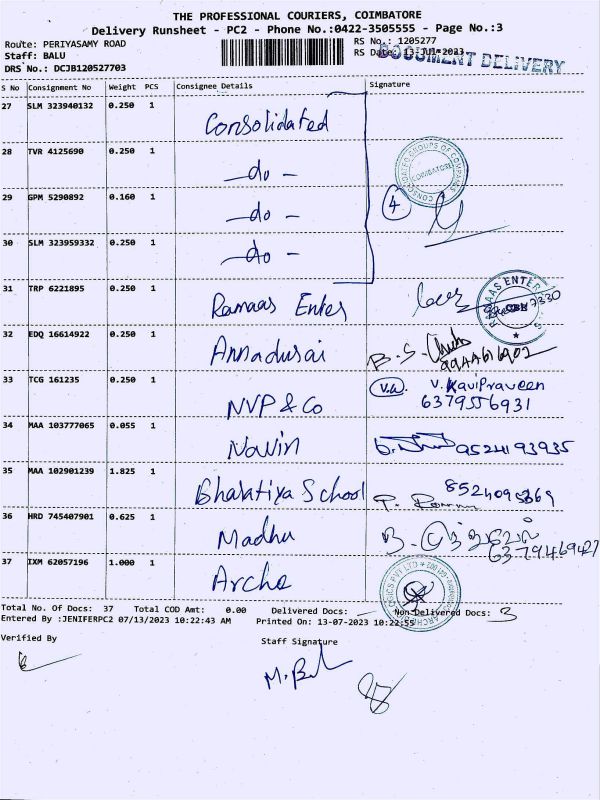 THE PROFESSIONAL COURIERS, COIMBATORE
Delivery Runsheet - PC2 - Phone No.:0422-3505555 - Page No.:3
Route: PERIYASAMY ROAD RS No.: 1205277
Staff: BALU RS Date: 13-Jul-2023
DOCUMENT DELIVERY
DRS No.: DCJB120527703
S No Consignment No Weight PCS Consignee Details Signature
27 SLM 323940132 0.250 1 Consolidated
28 TVR 4125690 0.250 1 -do-
CONSOLIDATED GROUPS OF COMPANIES COIMBATORE
29 GPM 5290892 0.160 1 -do- 4
30 SLM 323959332 0.250 1 -do-
31 TRP 6221895 0.250 1 Ramaas Enter
32 EDQ 16614922 0.250 1 Annadurai B.S.
33 TCG 161235 0.250 1 NVP & Co V.a. V. Kavipraveen
6379556931
34 MAA 103777065 0.055 1 Navin 9524193935
35 MAA 102901239 1.825 1 Bharatiya School 8524095369
36 HRD 745407901 0.625 1 Madhu
6379469427
37 IXM 62057196 1.000 1 Archa
Total No. Of Docs: 37 Total COD Amt: 0.00 Delivered Docs: Non-Delivered Docs: 3
Entered By :JENIFERPC2 07/13/2023 10:22:43 AM Printed On: 13-07-2023 10:22:55
Verified By Staff Signature